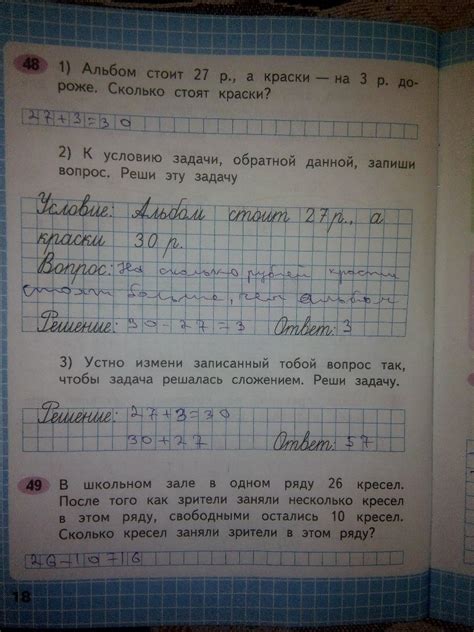 48 1) Альбом стоит 27 р., а краски — на 3 р. до-
роже. Сколько стоят краски?
27+3=30
2) К условию задачи, обратной данной, запиши
вопрос. Реши эту задачу
Условие: Альбом стоит 27 р., а
краски 30 р.
Вопрос: На сколько рублей краски
стоят больше, чем альбом
Решение: 30-27=3 Ответ: 3
3) Устно измени записанный тобой вопрос так,
чтобы задача решалась сложением. Реши задачу.
Решение: 27+3=30
30+27 Ответ: 57
49 В школьном зале в одном ряду 26 кресел.
После того как зрители заняли несколько кресел
в этом ряду, свободными остались 10 кресел.
Сколько кресел заняли зрители в этом ряду?
26-10=16
18